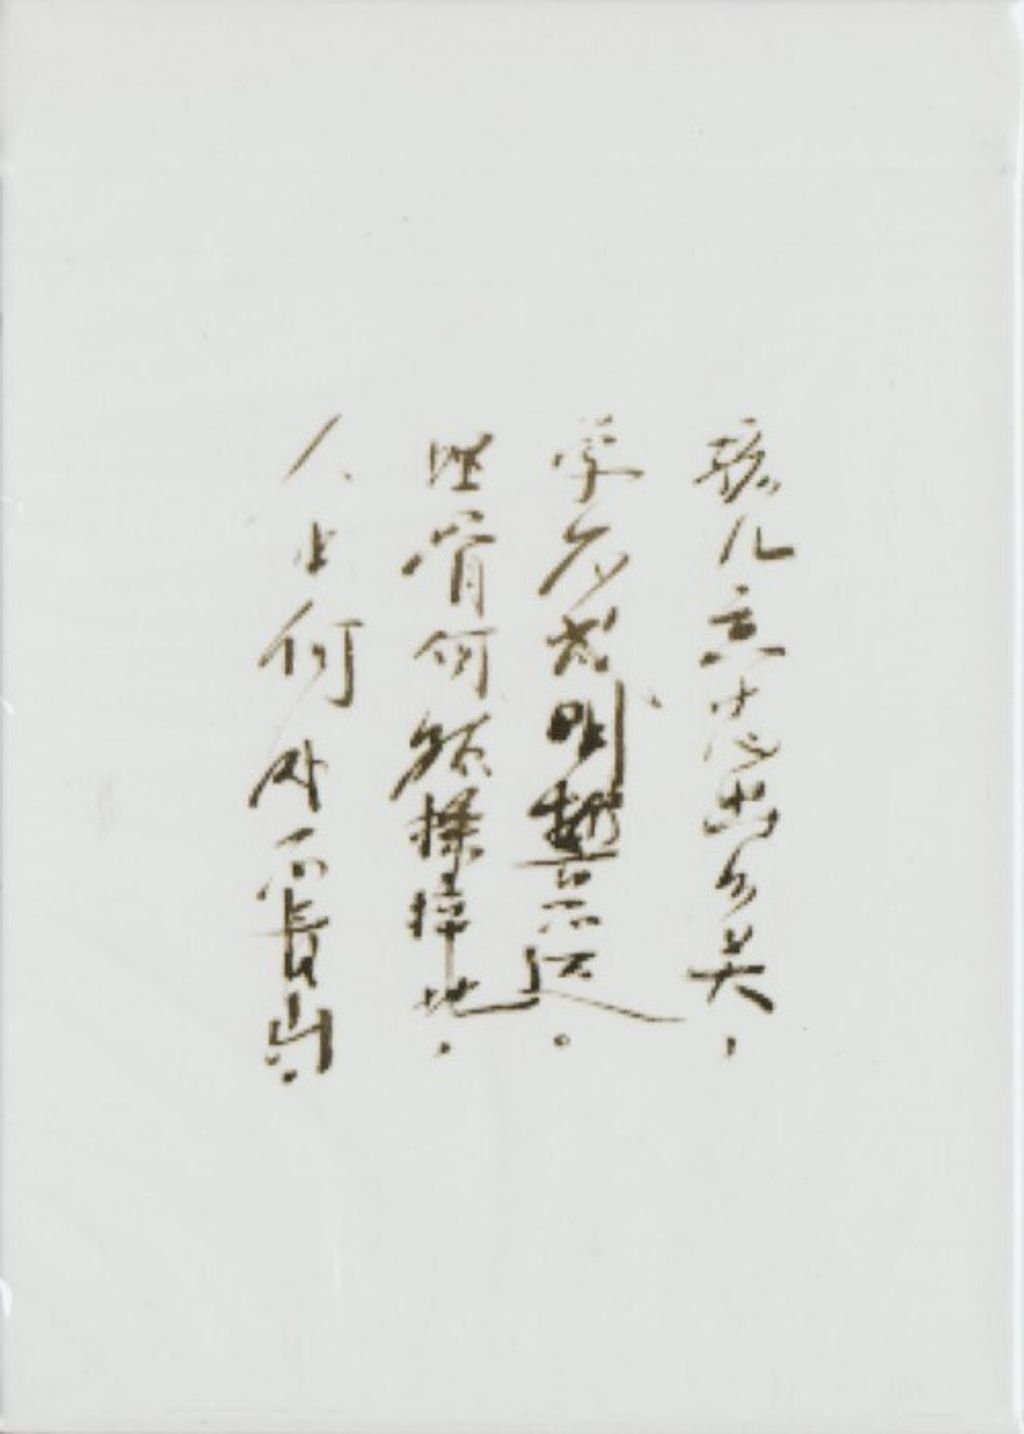 孩儿立志出乡关，
学不成明誓不还。
埋骨何须地。
人生何处山。